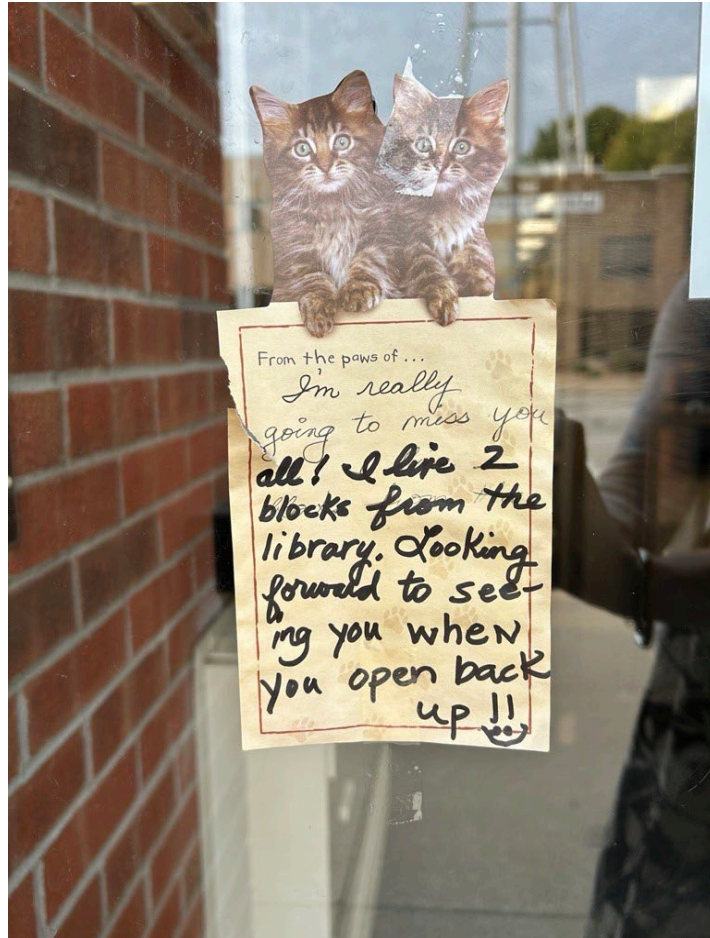 From the paws of...
I'm really
going to miss you
all! I live 2
blocks from the
library. Looking
forward to see-
ing you when
you open back
up!!